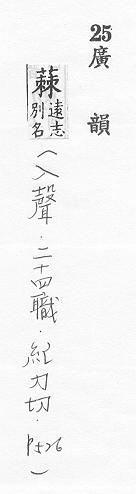 25廣韻
蕀遠志
別名
(入聲·二十四職·紀力切·P526)